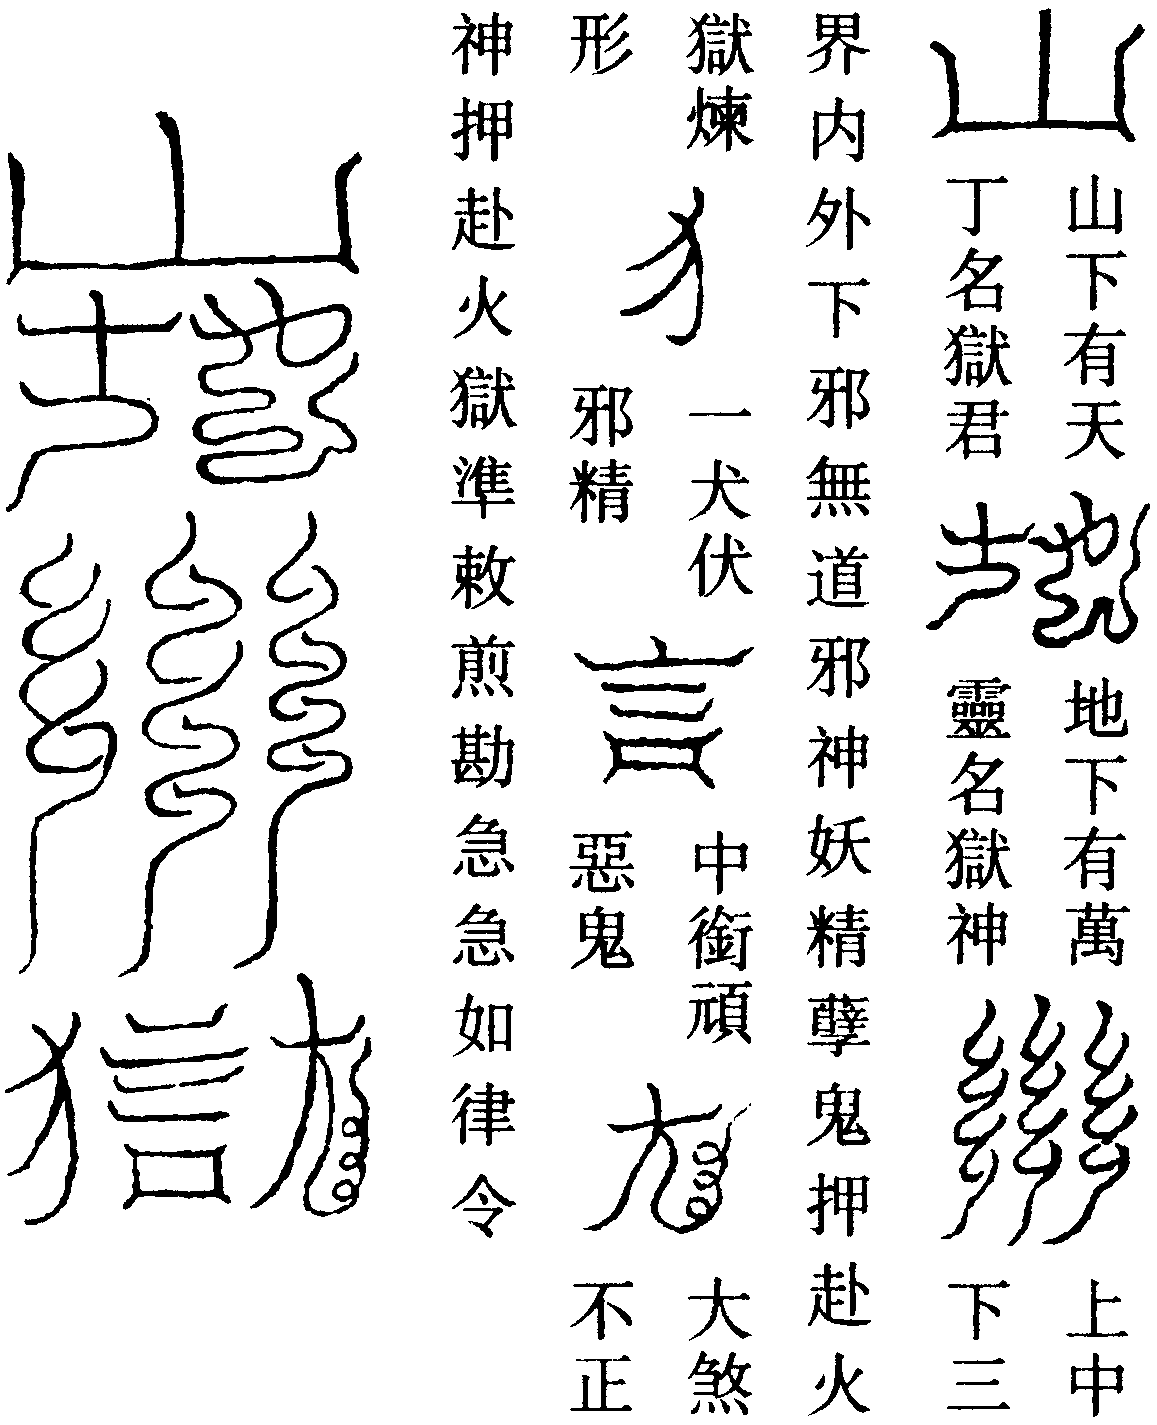 山
山下有天
丁名獄君
地
地下有萬
靈名獄神
上中
下三
界内外下邪無道邪神妖精孽鬼押赴火
獄煉
形
犭
一犬伏
邪精
言
中銜頑
惡鬼
大煞
不正
神押赴火獄準敕煎勘急急如律令
山
地
犭言